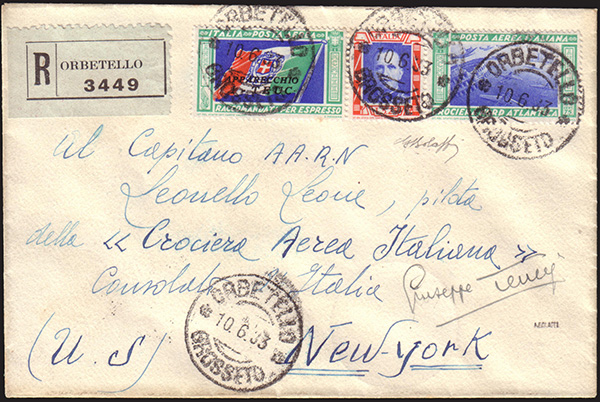 R ORBETELLO
3449
ITALIA POSTA AEREA
APPARECCHIO
I-TEUC.
RACCOMANDATA PER ESPRESSO
POSTA AEREA ITALIANA
CROCIERA NORD ATLANTICA
ORBETELLO
10.6.33
GROSSETO
ORBETELLO
10.6.33
GROSSETO
ORBETELLO
10.6.33
GROSSETO
Al Capitano A.A.R.N
Leonello Leone, pilota
della « Crociera Aerea Italiana »
Consolato d'Italia
Giuseppe
ORBETELLO
10.6.33
GROSSETO
(U.S) New-York